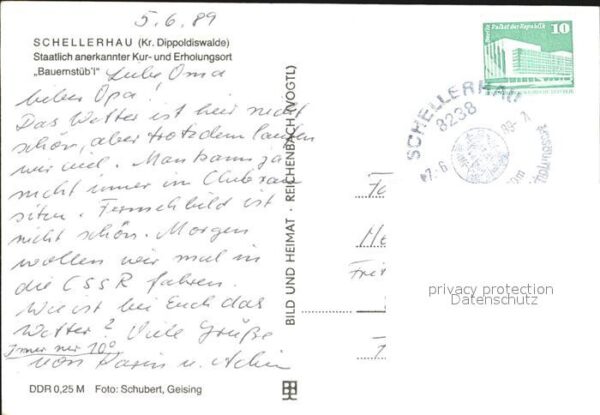 5.6.89
SCHELLERHAU (Kr. Dippoldiswalde)
Staatlich anerkannter Kur- und Erholungsort
„Bauernstüb'l"
Liebe Oma
lieber Opa!
Das Wetter ist hier nicht
schön, aber trotzdem laufen
wir viel. Man kann ja
nicht immer im Clubraum
sitzen. Fernsehbild ist
nicht schön. Morgen
wollen wir mal in
die CSSR fahren.
Wie ist bei Euch das
Wetter? Viele Grüße
Immer nur 10°
von Karin u. Achim
DDR 0,25 M Foto: Schubert, Geising
BILD UND HEIMAT · REICHENBACH (VOGTL)
Berlin Palast der Republik
10
SCHELLERHAU
8238
Fa
He
Frit
privacy protection
Datenschutz